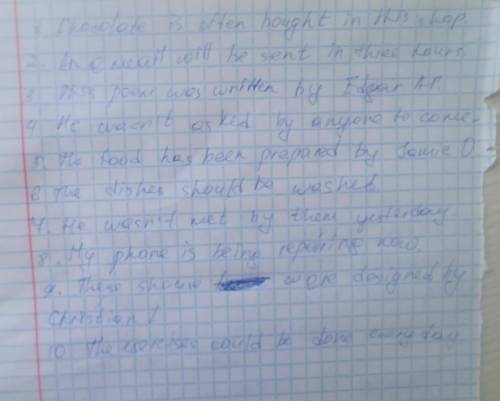 1. Chocolate is often bought in this shop.
2. An e-mail will be sent in three hours
3. This poem was written by Edgar A.P.
4. He wasn't asked by anyone to come.
5. The food has been prepared by Jamie O
6. The dishes should be washed.
7. He wasn't met by them yesterday
8. My phone is being repairing now
9. These were designed by
Christian
10. The exercises could be done every day